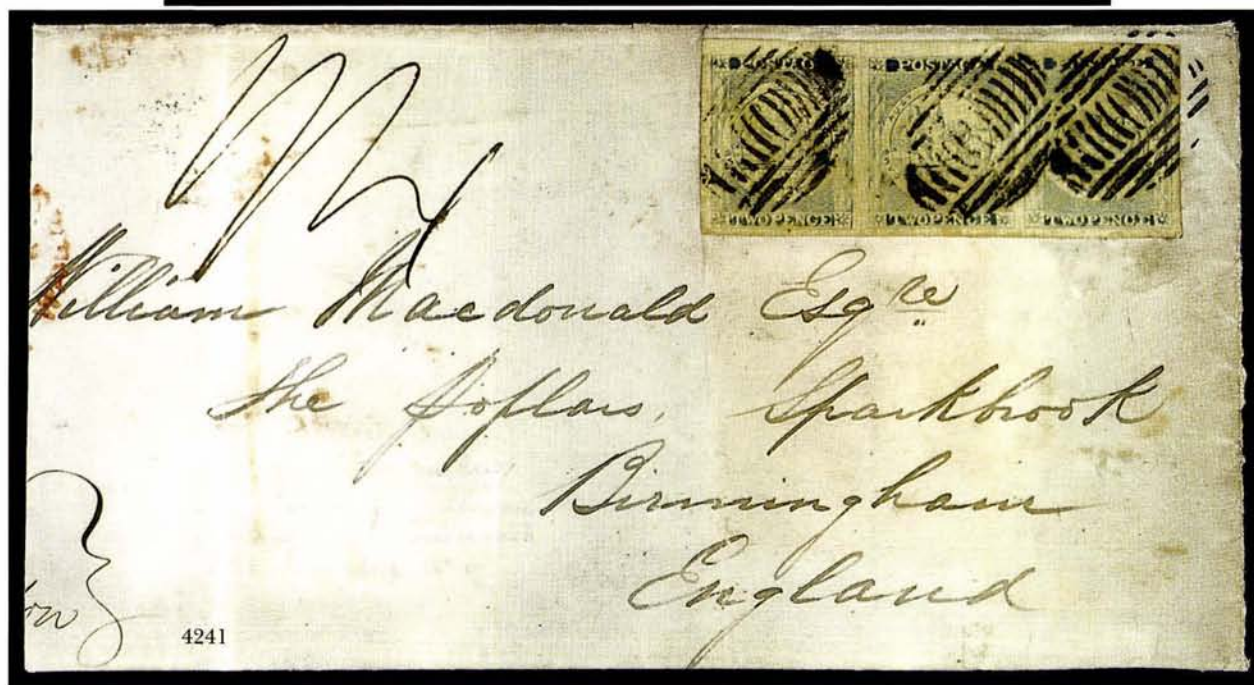 POSTAGE
TWOPENCE TWOPENCE TWOPENCE
William Macdonald Esqre
The Poplars, Sparkbrook
Birmingham
England
4241